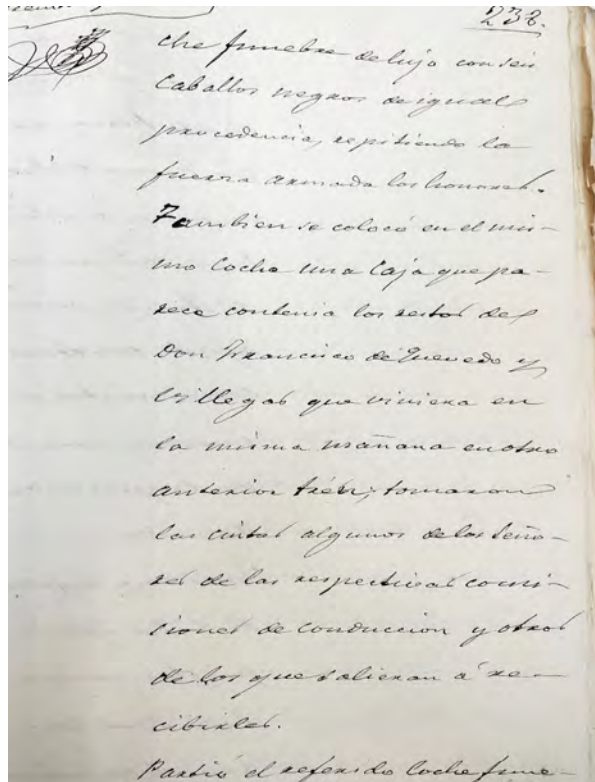 238.
che funebre de lujo con seis
Caballos negros de igual
procedencia, repitiendo la
fuerza armada los honores.
Tambien se colocó en el mis-
mo Coche una Caja que pa-
rece contenia los restos de
Don Francisco de Quevedo y
Villegas que viniera en
la misma mañana en otro
anterior trén; tomaron
las cintas algunos de los Seño-
res de las respectivas comi-
siones de conduccion y otros
de los que salieran á re-
cibirles.
Partió el referido Coche fune-